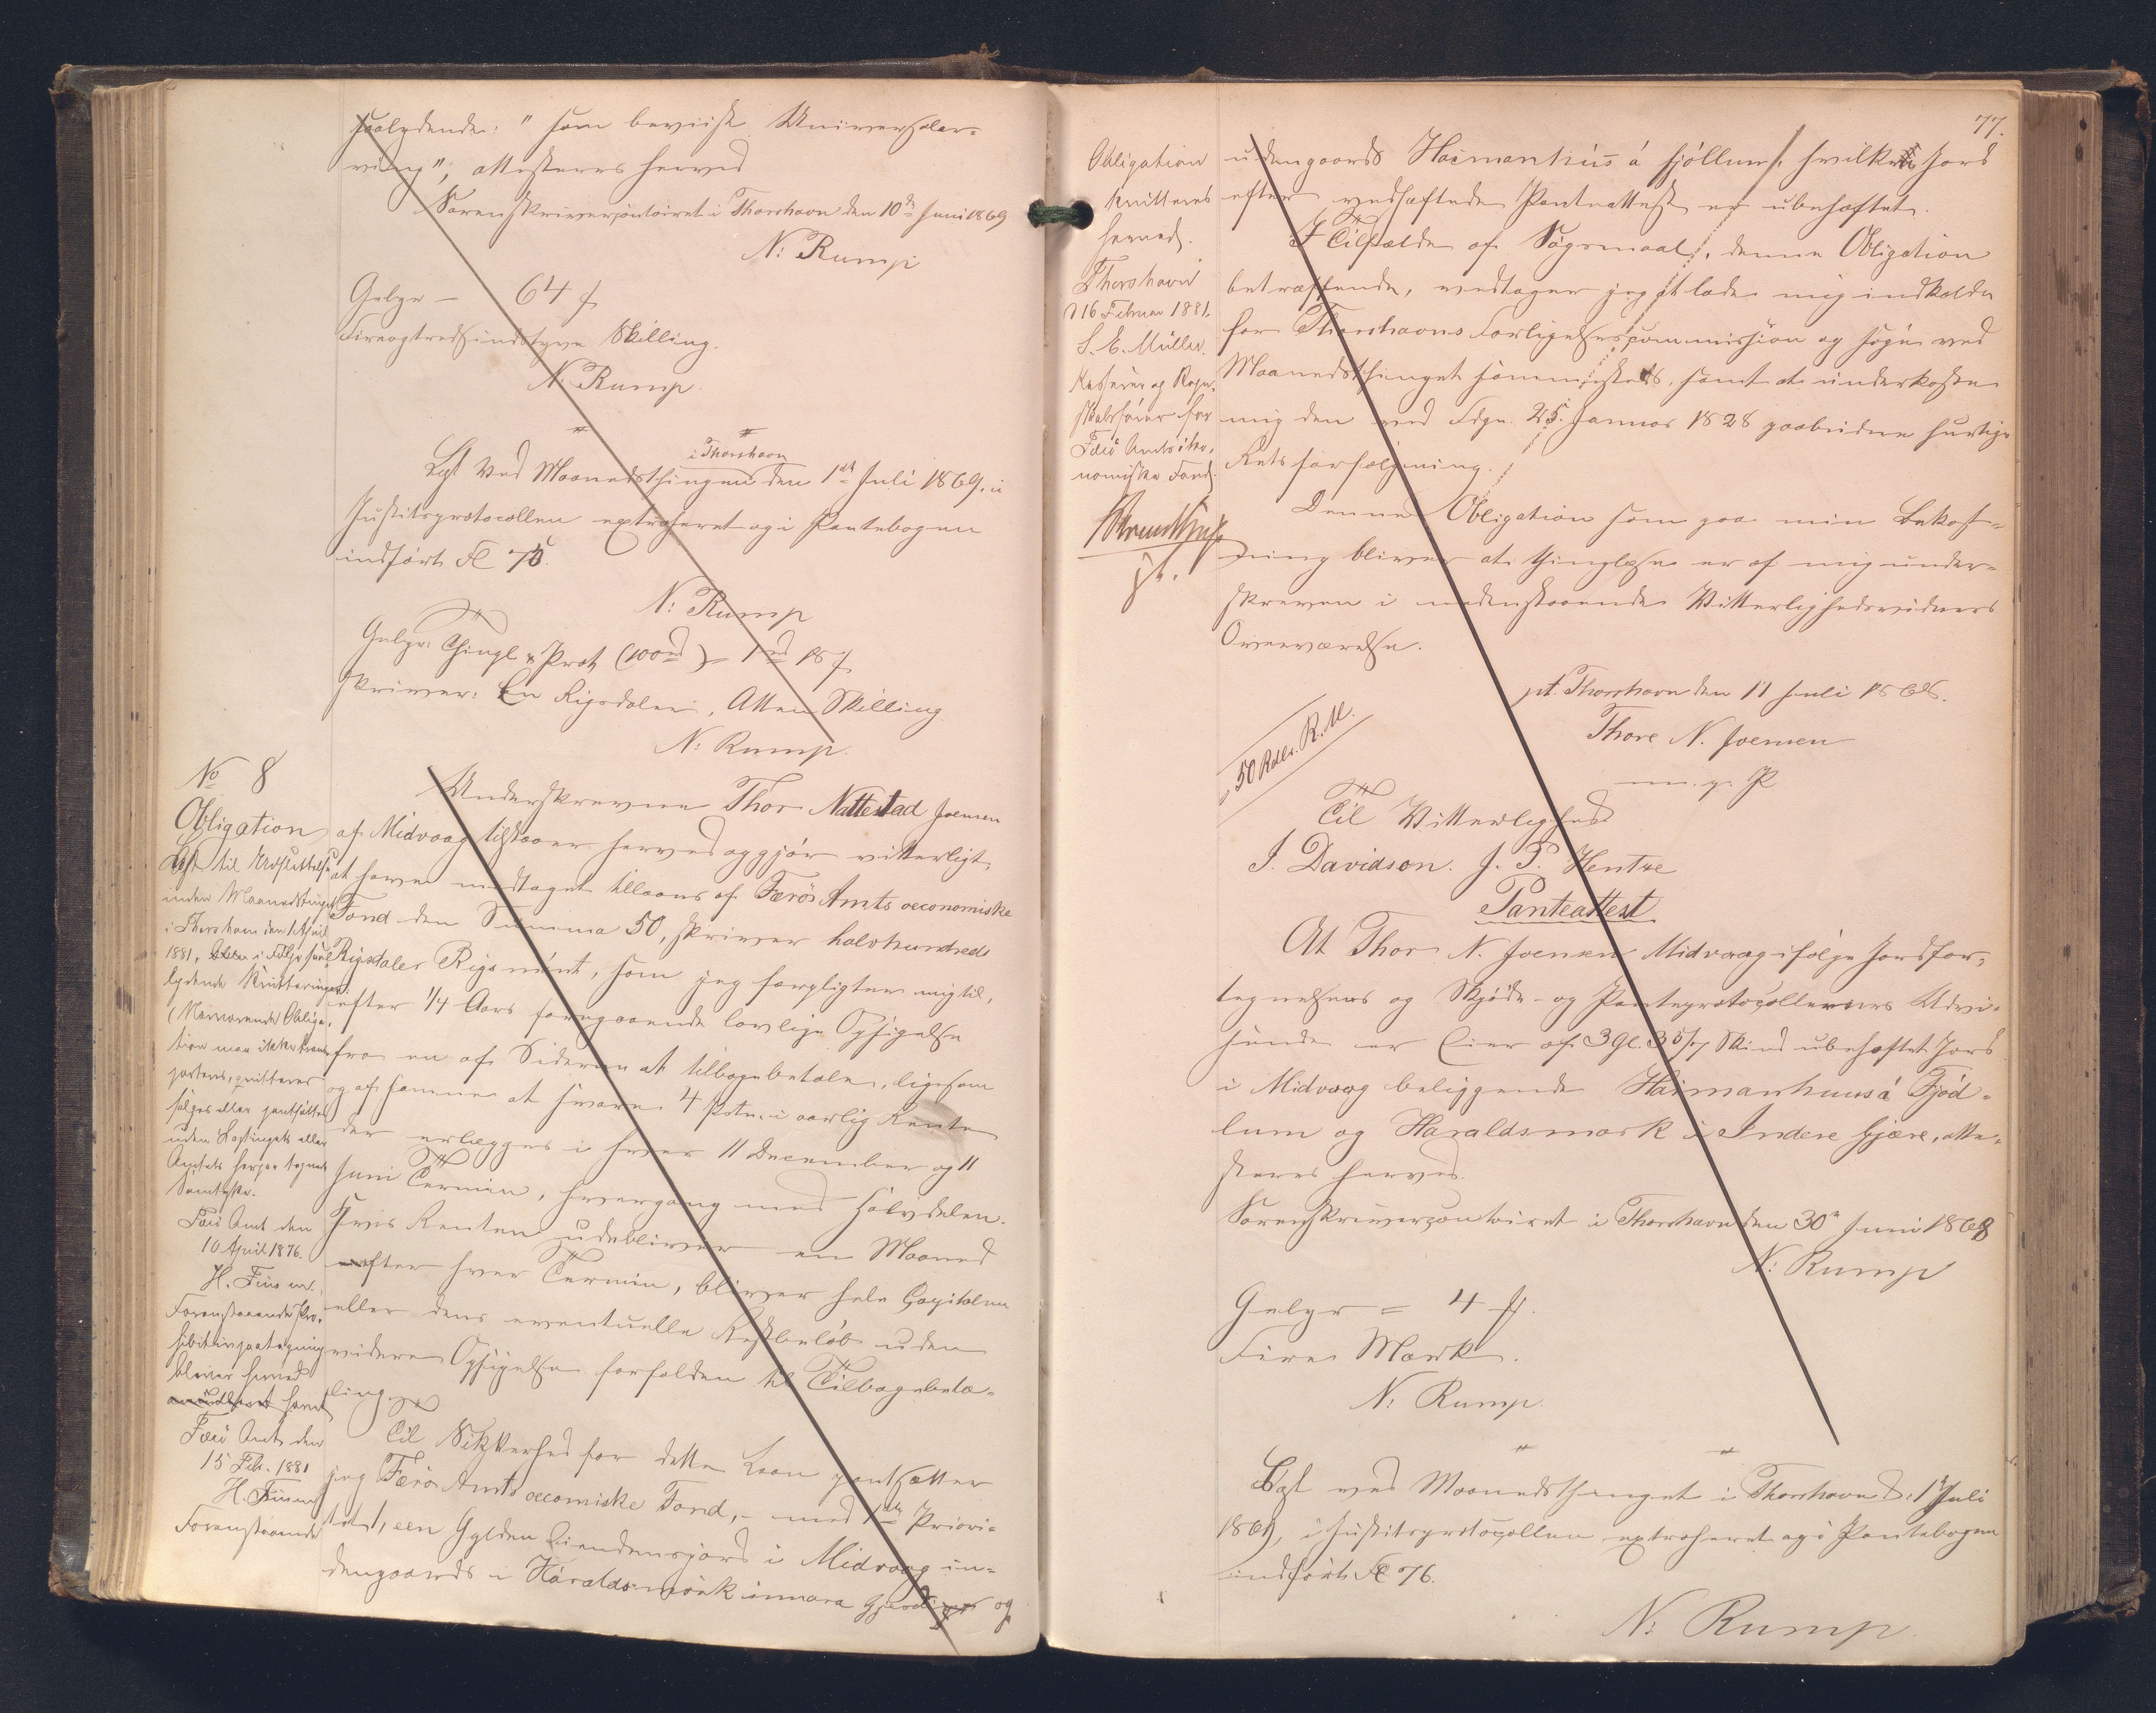 saalydende: " som beviist Universalar-
ving", attesteres herved
Sorenskrivercontoiret i Thorshavn den 10de Juni 1869
N: Rump
Gebyr — 64 ß
Fireogtredsindstyve Skilling.
N: Rump.
Læst ved Maanedsthinget i Thorshavn den 1ste Juli 1869, i
Justitsprotocollen extraheret og i Pantebogen
indført Fol 75.
N: Rump
Gebyr: Thingl & Prot (100 rd) = 1 rd 18 ß
skriver: En Rigsdaler, Atten Skilling
N: Rump.
No 8
Obligation
Læst til Udslettelse
inden Maanedstinget
i Thorshavn den 1 April
1881, i Følge saa-
lydende Kvitteringer
(Nærværende Obliga-
tion maa ikke trans-
porteres, qvitteres
sælges eller pantsættes
uden Lagtingets eller
Amtets herpaa tegnede
Samtykke.
Færø Amt den
10 April 1876.
H. Finsen.
Foranstaaende Pro-
hibitivpaategning
bliver herved
Færø Amt den
15 Feb. 1881
H. Finsen
Foranstaaende
Underskrevne Thor Nattestad Joensen
af Midvaag tilstaaer herved og gjør vitterligt,
at have modtaget tillaans af Færø Amts oeconomiske
Fond den Summa 50, skriver halvhundrede
Rigsdaler Rigsmønt, som jeg forpligter mig til,
efter 1/4 Aars foregaaende lovlige Opsigelse
fra en af Siderne at tilbagebetale, ligesom
og af samme at svare 4 Pctn. i aarlig Rente
der erlægges i hver 11 December og 11
Juni Termin, hvergang med Halvdelen.
Hvis Renten udebliver en Maaned
efter hver Termin, bliver hele Capitalen
eller dens eventuelle Restbeløb uden
videre Opsigelse forfalden til Tilbagebeta-
ling.
Til Sikkerhed for dette Laan pantsætter
jeg Færø Amts oecomiske Fond, med 1ste Priori-
tet 1, een Gylden Eiendomsjord i Midvaag in-
dengaards i Haraldsmørk innara og
77.
Obligation
kvitteres
herved.
Thorshavn
d 16 Februar 1881.
S. E. Müller.
Kasserer og Regn-
skabsfører for
Færø Amts øko-
nomiske Fond.
udengaards Haimanhús á fjøllum, hvilken Jord
efter vedhæftede Panteattest er ubehæftet.
I Tilfælde af Søgsmaal, denne Obligation
betræffende, vedtager jeg at lade mig indkalde
for Thorshavns Forligelsescommission og søges ved
Maanedsthinget sammesteds, samt at underkaste
mig den ved Fdgn. 25. Januar 1828 paabudne hurtige
Retsforfølgning.
Denne Obligation som paa min Bekost-
ning bliver at thinglæse er af mig under-
skreven i nedenstaaende Vitterlighedsvidners
Overværelse.
pt. Thorshavn den 11 Juli 1868.
Thore N. Joensen
m. p. P
50 Rdlr. R. M.
Til Vitterlighed
J. Davidson. J. P. Hentze
Panteattest
At Thor N. Joensen Midvaag ifølge Jordfor-
tegnelsens og Skjøde- og Panteprotocollernes Udvi-
sende er Eier af 3 Gl. 3 5/7 Skind ubehæftet Jord
i Midvaag beliggende Haimanhuus á Fjød-
lum og Haraldsmørk i Indere Gjære, atte-
steres herved.
Sorenskrivercontoiret i Thorshavn den 30te Juni 1868
N: Rump
Gebyr = 4 ß.
Fire Mark.
N: Rump.
Læst ved Maanedsthinget i Thorshavn d: 1 Juli
1869, i Justitsprotocollen extraheret og i Pantebogen
indført Fol 76.
N: Rump.